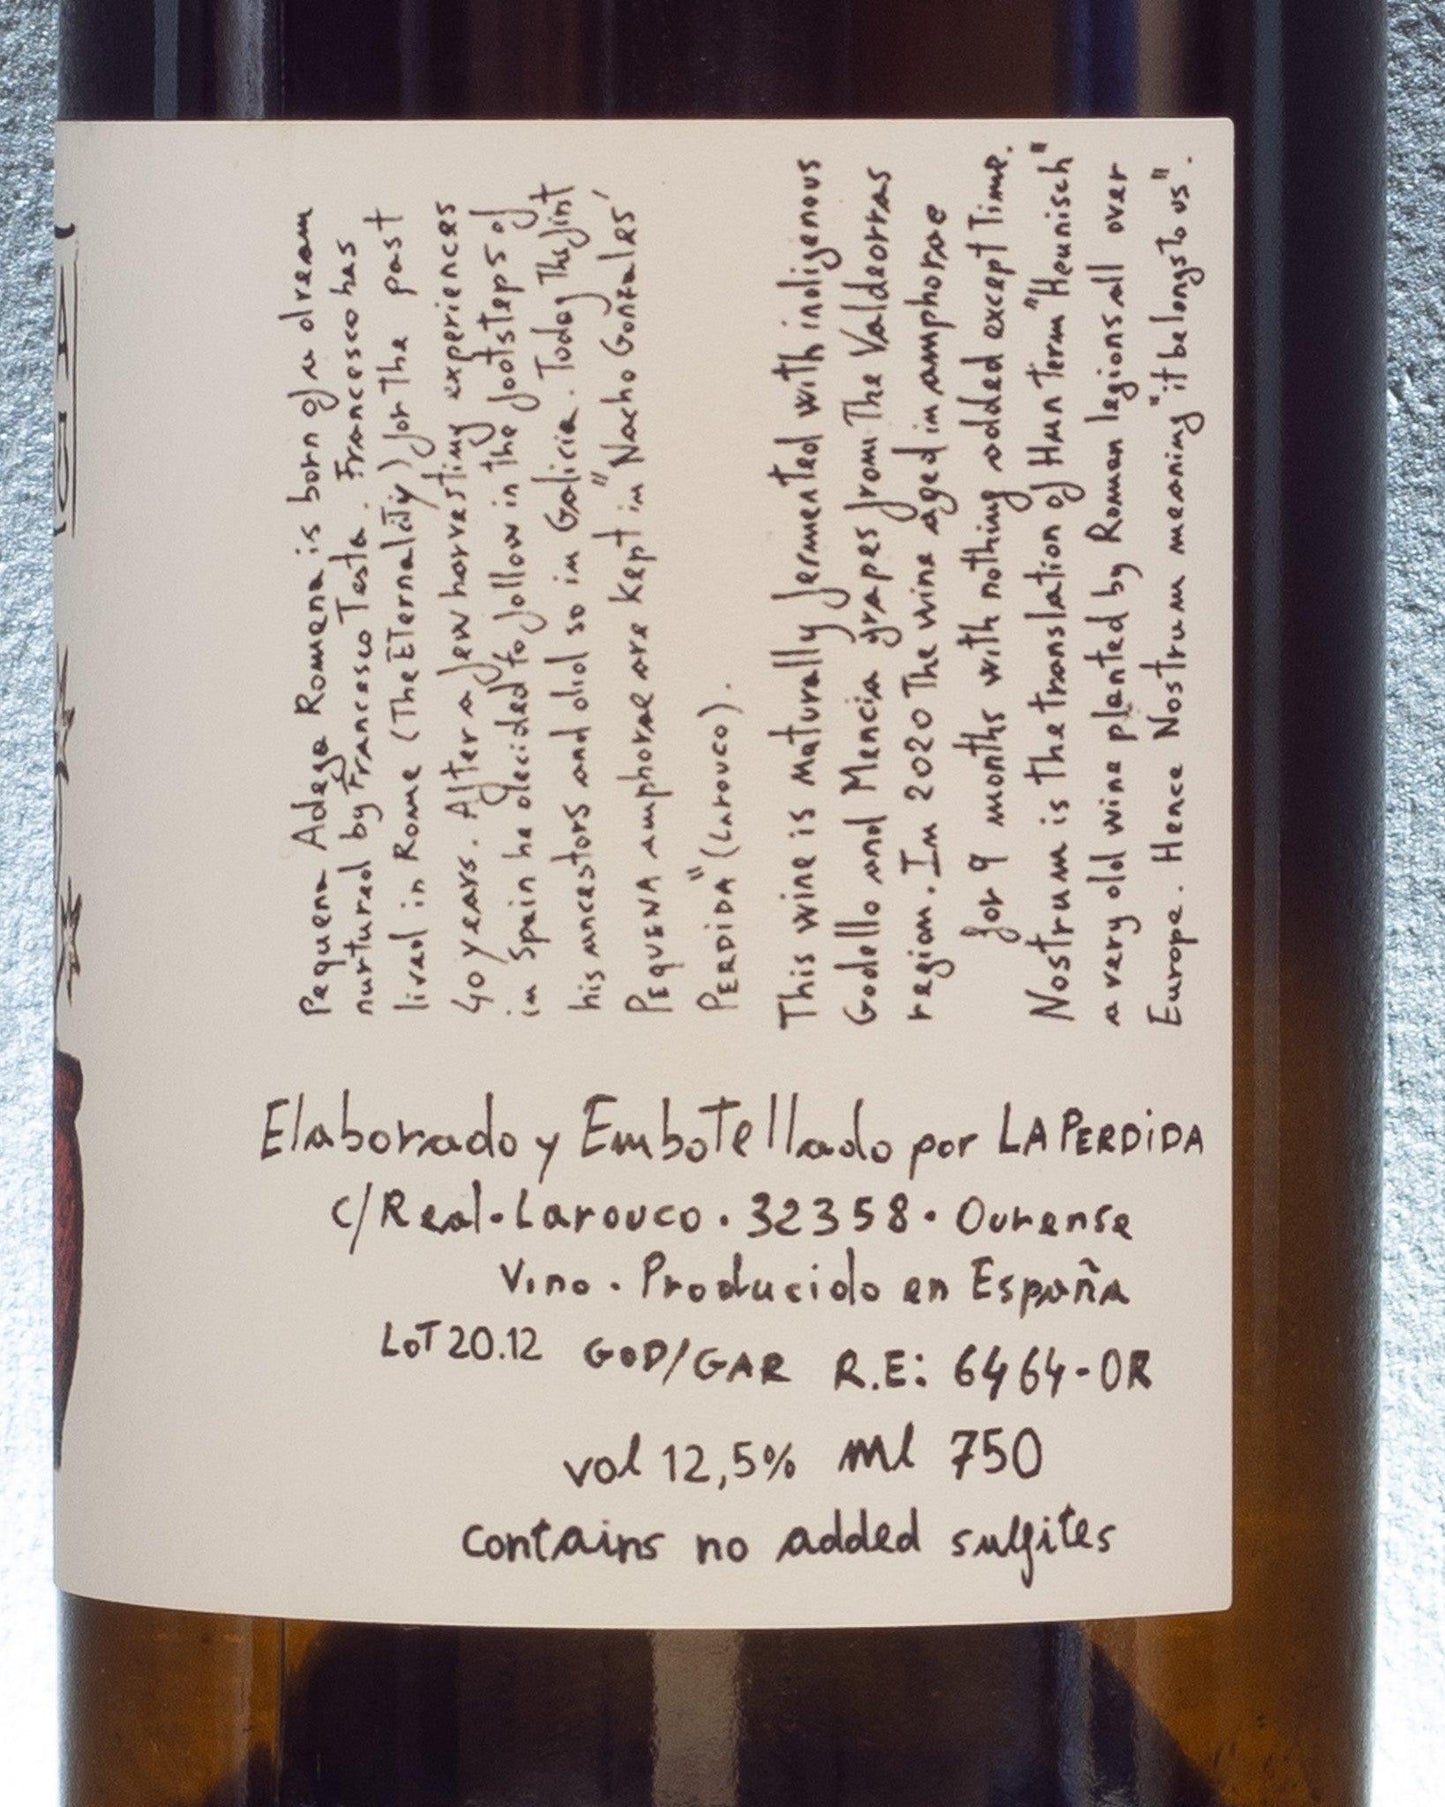 Pequena Adega Romena is born of a dream
nurtured by Francesco Testa. Francesco has
lived in Rome (The ETernal city) for the past
40 years. After a few harvesting experiences
in Spain he decided to follow in the footsteps of
his ancestors and did so in Galicia. Today The first
PEQUENA amphorae are kept in "Nacho Gonzales'
PERDiDA" (Larouco).
This wine is naturally fermented with indigenous
Godello and Mencia grapes from The Valdeorras
region. In 2020 The wine aged in amphorae
for 9 months with nothing added except Time.
Nostrum is the translation of Hun term "Heunisch"
a very old wine planted by Roman legions all over
Europe. Hence Nostrum meaning "it belongs to us".
Elaborado y EmboTellado por LA PERDiDA
c/Real·Larouco·32358·Ourense
Vino·Producido en España
LoT 20.12 GOD/GAR R.E: 6464-OR
vol 12,5% ml 750
contains no added sulfites